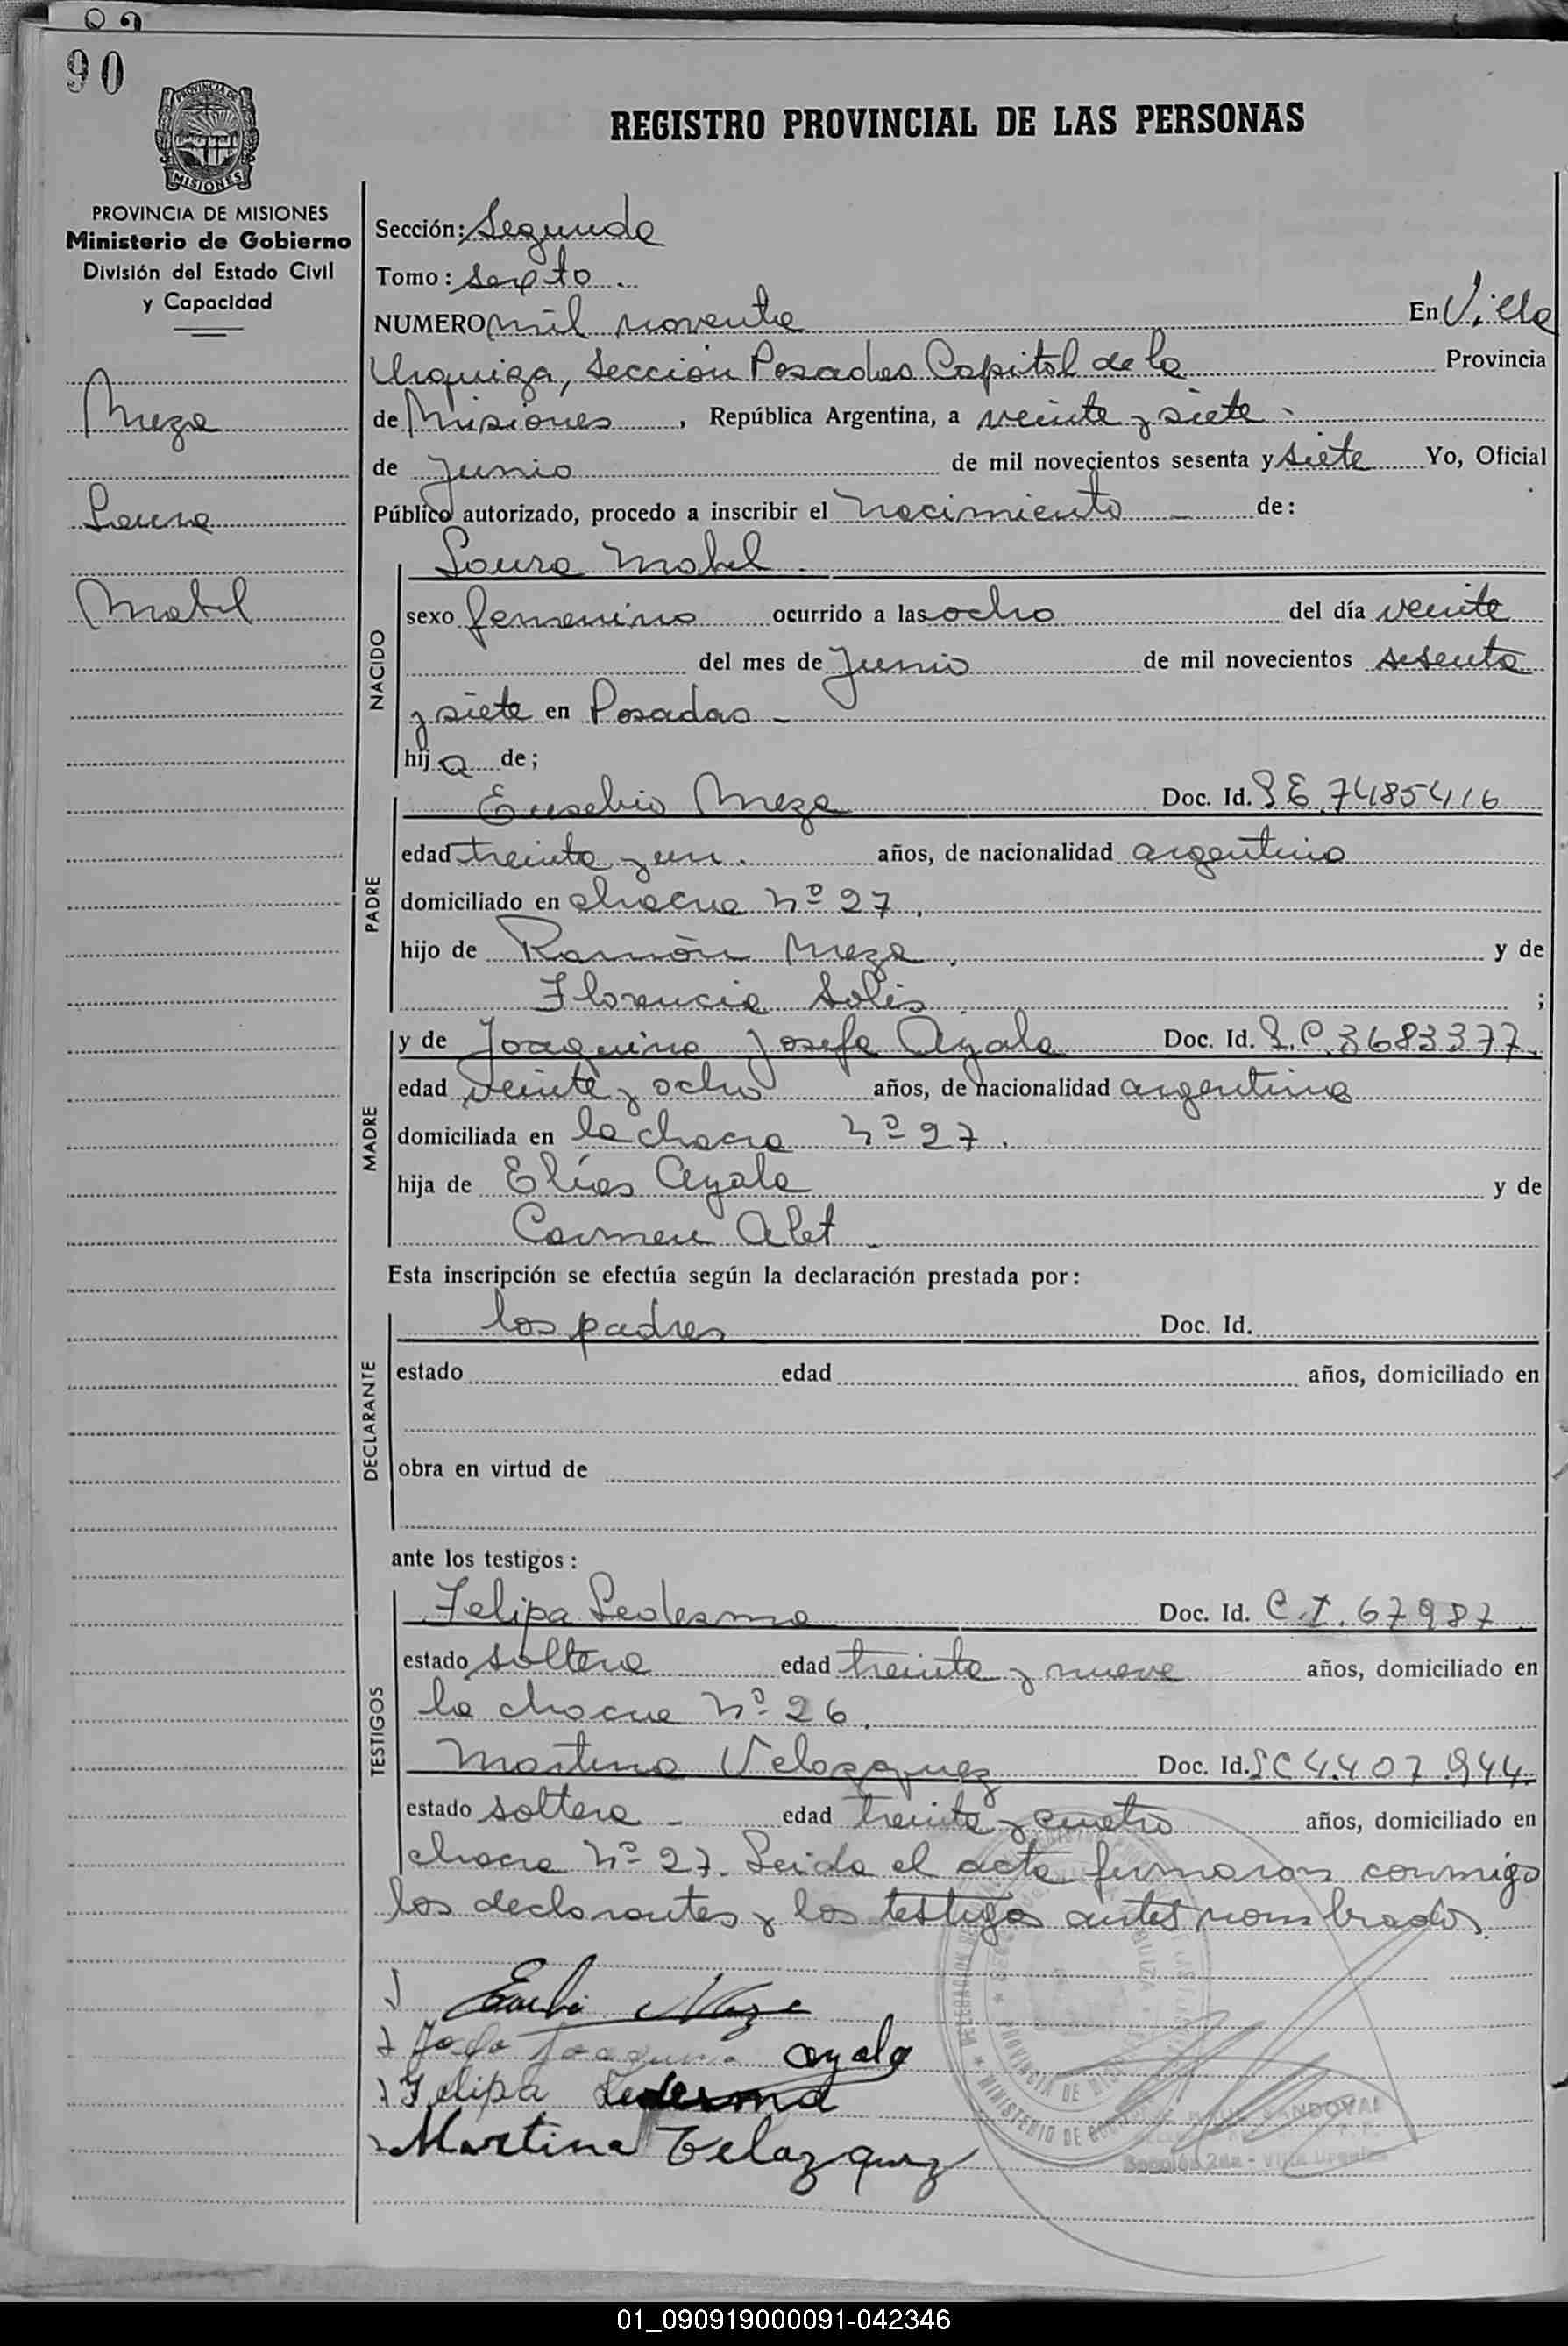 90
PROVINCIA DE
MISIONES
REGISTRO PROVINCIAL DE LAS PERSONAS
PROVINCIA DE MISIONES
Ministerio de Gobierno
División del Estado Civil
y Capacidad
Meza
Laura
Mabel
Sección: Segunda
Tomo: sexto.
NUMERO mil noventa En Villa
Urquiza, Sección Posadas Capital de la Provincia
de Misiones, República Argentina, a veinte y siete-
de Junio de mil novecientos sesenta y siete Yo, Oficial
Público autorizado, procedo a inscribir el Nacimiento - de:
NACIDO
Laura Mabel.
sexo femenino ocurrido a las ocho del día veinte
del mes de Junio de mil novecientos sesenta
y siete en Posadas -
hij a de;
PADRE
Eusebio Meza Doc. Id. L E 7485416
edad treinta y un. años, de nacionalidad argentino
domiciliado en chacra Nº 27.
hijo de Ramón Meza. y de
Florencia Solis ;
MADRE
y de Joaquina Josefa Ayala Doc. Id. L.C. 3683377.
edad veinte y ocho años, de nacionalidad argentina
domiciliada en la chacra Nº 27.
hija de Elías Ayala y de
Carmen Alet.
Esta inscripción se efectúa según la declaración prestada por:
DECLARANTE
los padres Doc. Id.
estado edad años, domiciliado en
obra en virtud de
ante los testigos:
TESTIGOS
Felipa Ledesma Doc. Id. C.I. 67987
estado soltera edad treinta y nueve años, domiciliado en
la chacra Nº 26.
Martina Velazquez Doc. Id. LC 4.407.944.
estado soltera - edad treinta y cuatro años, domiciliado en
chacra Nº 27. Leida el acta firmaron conmigo
los declarantes y los testigos antes nombrados.
Meza
Josefa Joaquina Ayala
Felipa Ledesma
Martina Velazquez
SANDOVAL
Sección 2da - Villa Urquiza
01_090919000091-042346